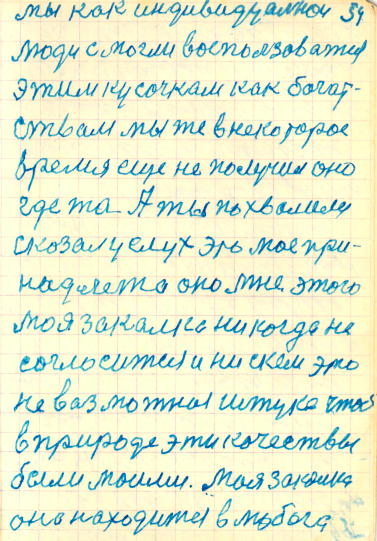 мы как индивидуалной 54
люди смогли воспользоватся
этим кусочкам как богат-
ствам мы те в некоторое
время еще не получил оно
где та А ты похвалили
скозал услух это мое при-
надлежта оно мне этого
моя закалка никогда не
согласится и ни скем это
не вазможная штука чтоб
в природе эти качествы
были моими. Моя закалка
она находится в любога